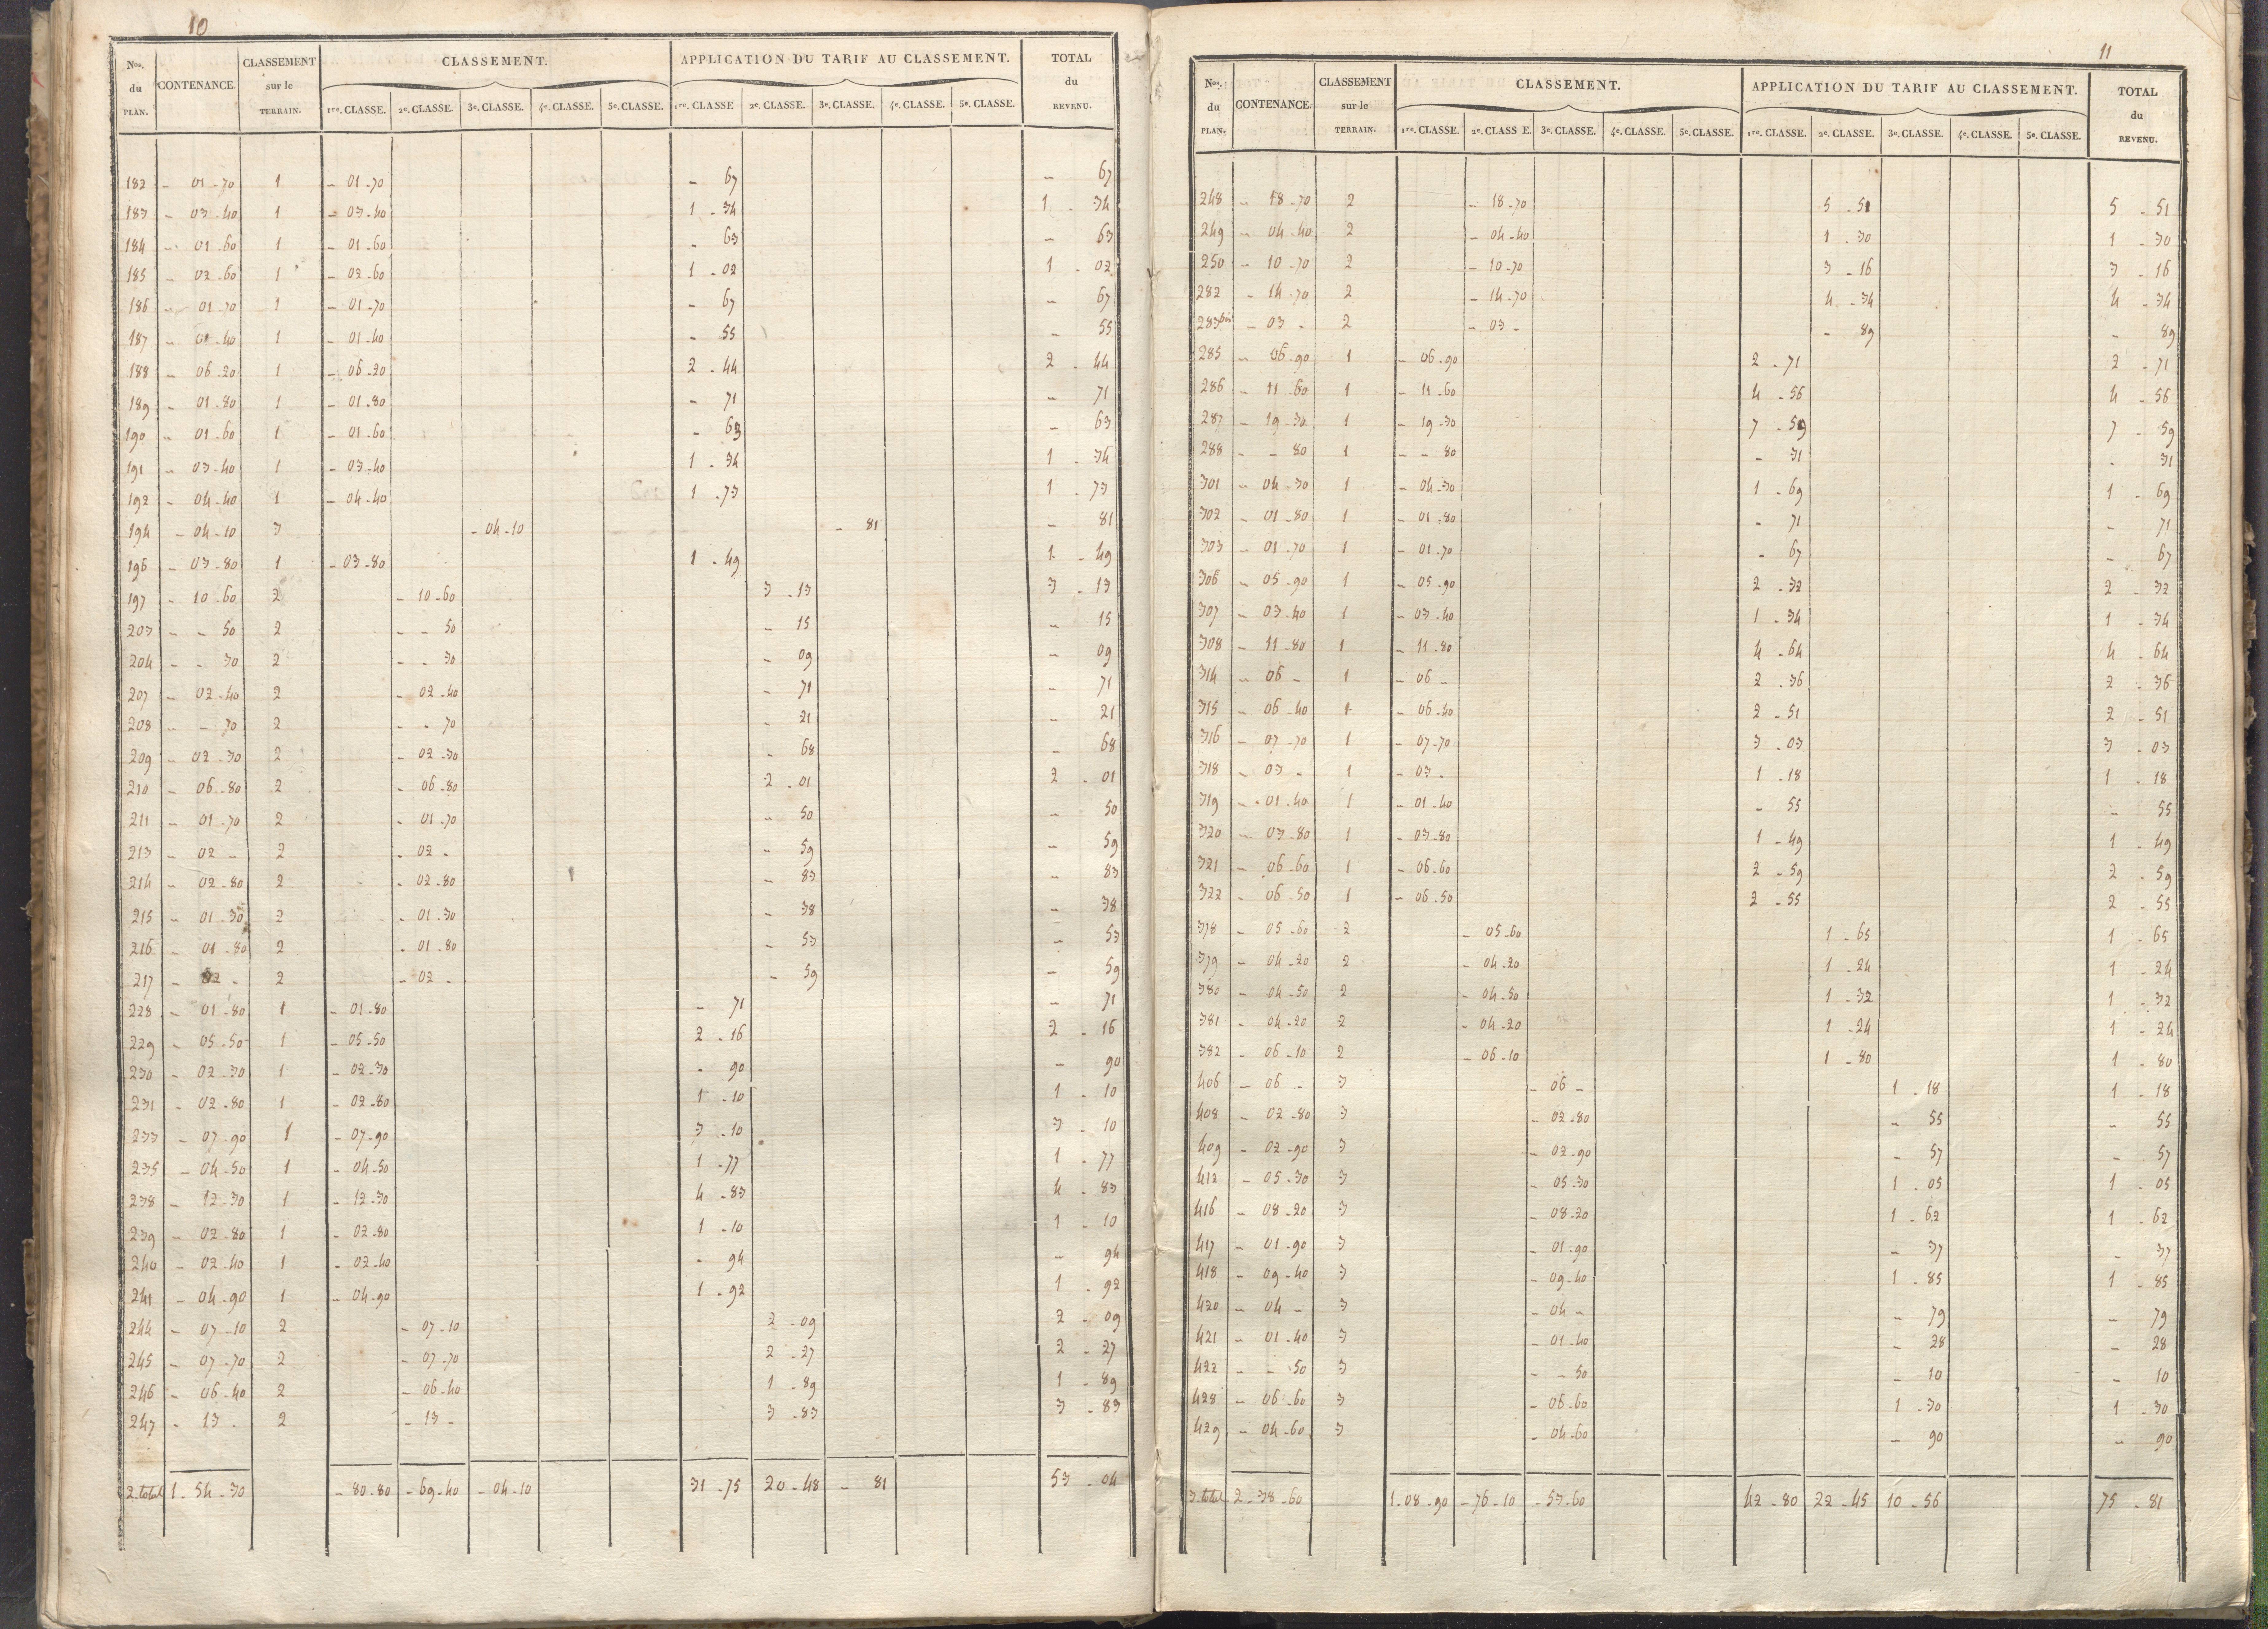 10
Nos. du PLAN. CONTENANCE. CLASSEMENT sur le TERRAIN. CLASSEMENT. APPLICATION DU TARIF AU CLASSEMENT. TOTAL du REVENU.
1re. CLASSE. 2e. CLASSE. 3e. CLASSE. 4e. CLASSE. 5e. CLASSE. 1re. CLASSE 2e. CLASSE. 3e. CLASSE. 4e. CLASSE. 5e. CLASSE.
182 - 01-70 1 - 01-70 - 67 - 67
183 - 03-40 1 - 03-40 1 - 34 1 - 34
184 - 01-60 1 - 01-60 - 63 - 63
185 - 02-60 1 - 02-60 1 - 02 1 - 02
186 - 01-70 1 - 01-70 - 67 - 67
187 - 01-40 1 - 01-40 - 55 - 55
188 - 06-20 1 - 06-20 2 - 44 2 - 44
189 - 01-80 1 - 01-80 - 71 - 71
190 - 01-60 1 - 01-60 - 63 - 63
191 - 03-40 1 - 03-40 1 - 34 1 - 34
192 - 04-40 1 - 04-40 1 - 73 1 - 73
194 - 04-10 3 - 04-10 - 81 - 81
196 - 03-80 1 - 03-80 1 - 49 1 - 49
197 - 10-60 2 - 10-60 3 - 13 3 - 13
203 - - 50 2 - - 50 - 15 - 15
204 - - 30 2 - - 30 - 09 - 09
207 - 02-40 2 - 02-40 - 71 - 71
208 - - 70 2 - - 70 - 21 - 21
209 - 02-30 2 - 02-30 - 68 - 68
210 - 06-80 2 - 06-80 2 - 01 2 - 01
211 - 01-70 2 - 01-70 - 50 - 50
213 - 02 - 2 - 02 - - 59 - 59
214 - 02-80 2 - 02-80 - 83 - 83
215 - 01-30 2 - 01-30 - 38 - 38
216 - 01-80 2 - 01-80 - 53 - 53
217 - 02 - 2 - 02 - - 59 - 59
228 - 01-80 1 - 01-80 - 71 - 71
229 - 05-50 1 - 05-50 2 - 16 2 - 16
230 - 02-30 1 - 02-30 - 90 - 90
231 - 02-80 1 - 02-80 1 - 10 1 - 10
233 - 07-90 1 - 07-90 3 - 10 3 - 10
235 - 04-50 1 - 04-50 1 - 77 1 - 77
238 - 12-30 1 - 12-30 4 - 83 4 - 83
239 - 02-80 1 - 02-80 1 - 10 1 - 10
240 - 02-40 1 - 02-40 - 94 - 94
241 - 04-90 1 - 04-90 1 - 92 1 - 92
244 - 07-10 2 - 07-10 2 - 09 2 - 09
245 - 07-70 2 - 07-70 2 - 27 2 - 27
246 - 06-40 2 - 06-40 1 - 89 1 - 89
247 - 13 - 2 - 13 - 3 - 83 3 - 83
2. total 1-54-30 - 80-80 - 69-40 - 04-10 31-75 20-48 - 81 53 - 04
11
Nos. du PLAN. CONTENANCE. CLASSEMENT sur le TERRAIN. CLASSEMENT. APPLICATION DU TARIF AU CLASSEMENT. TOTAL du REVENU.
1re. CLASSE. 2e. CLASS E. 3e. CLASSE. 4e. CLASSE. 5e. CLASSE. 1re. CLASSE. 2e. CLASSE. 3e. CLASSE. 4e. CLASSE. 5e. CLASSE.
248 - 18-70 2 - 18-70 5 - 51 5 - 51
249 - 04-40 2 - 04-40 1 - 30 1 - 30
250 - 10-70 2 - 10-70 3 - 16 3 - 16
282 - 14-70 2 - 14-70 4 - 34 4 - 34
283bis - 03 - 2 - 03 - - 89 - 89
285 - 06-90 1 - 06-90 2 - 71 2 - 71
286 - 11-60 1 - 11-60 4 - 56 4 - 56
287 - 19-30 1 - 19-30 7 - 59 7 - 59
288 - - 80 1 - - 80 - 31 - 31
301 - 04-30 1 - 04-30 1 - 69 1 - 69
302 - 01-80 1 - 01-80 - 71 - 71
303 - 01-70 1 - 01-70 - 67 - 67
306 - 05-90 1 - 05-90 2 - 32 2 - 32
307 - 03-40 1 - 03-40 1 - 34 1 - 34
308 - 11-80 1 - 11-80 4 - 64 4 - 64
314 - 06 - 1 - 06 - 2 - 36 2 - 36
315 - 06-40 1 - 06-40 2 - 51 2 - 51
316 - 07-70 1 - 07-70 3 - 03 3 - 03
318 - 03 - 1 - 03 - 1 - 18 1 - 18
319 - 01-40 1 - 01-40 - 55 - 55
320 - 03-80 1 - 03-80 1 - 49 1 - 49
321 - 06-60 1 - 06-60 2 - 59 2 - 59
322 - 06-50 1 - 06-50 2 - 55 2 - 55
378 - 05-60 2 - 05-60 1 - 65 1 - 65
379 - 04-20 2 - 04-20 1 - 24 1 - 24
380 - 04-50 2 - 04-50 1 - 32 1 - 32
381 - 04-20 2 - 04-20 1 - 24 1 - 24
382 - 06-10 2 - 06-10 1 - 80 1 - 80
406 - 06 - 3 - 06 - 1 - 18 1 - 18
408 - 02-80 3 - 02-80 - 55 - 55
409 - 02-90 3 - 02-90 - 57 - 57
412 - 05-30 3 - 05-30 1 - 05 1 - 05
416 - 08-20 3 - 08-20 1 - 62 1 - 62
417 - 01-90 3 - 01-90 - 37 - 37
418 - 09-40 3 - 09-40 1 - 85 1 - 85
420 - 04 - 3 - 04 - - 79 - 79
421 - 01-40 3 - 01-40 - 28 - 28
422 - - 50 3 - - 50 - 10 - 10
428 - 06-60 3 - 06-60 1 - 30 1 - 30
429 - 04-60 3 - 04-60 - 90 - 90
3. total 2-38-60 1-08-90 - 76-10 - 53-60 42-80 22-45 10-56 75 - 81